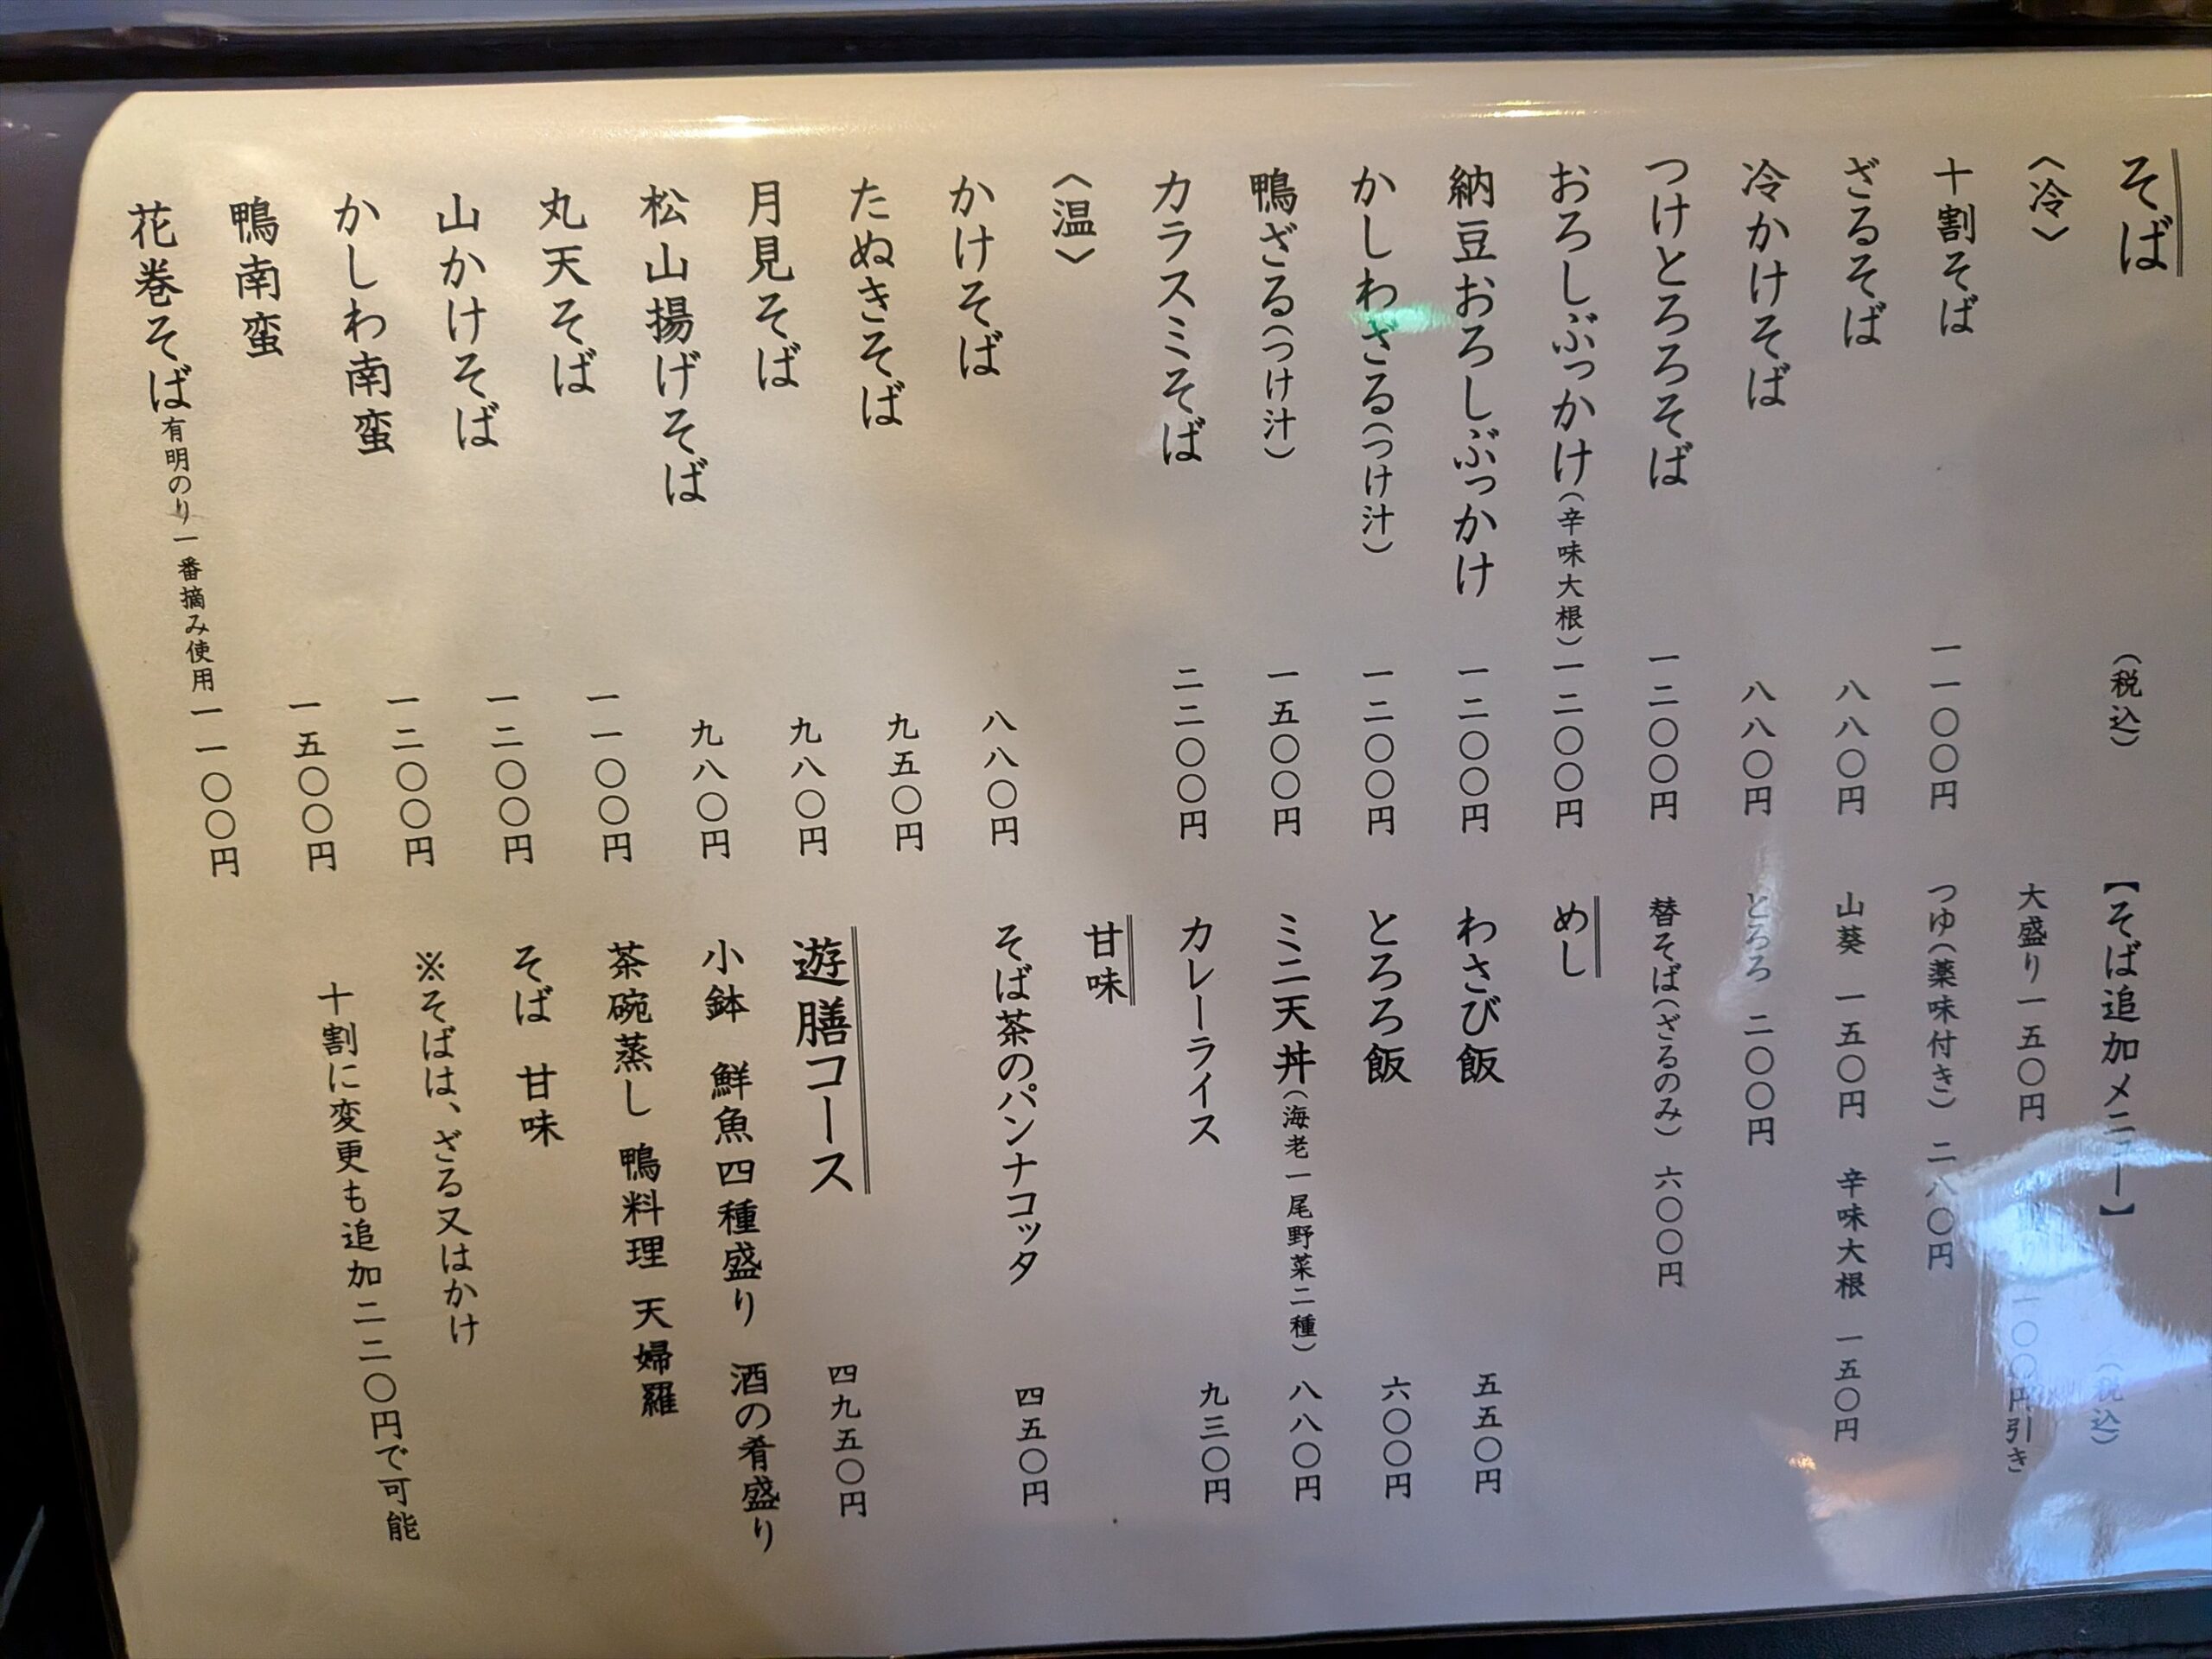 そば （税込）
〈冷〉
十割そば 一一〇〇円
ざるそば 八八〇円
冷かけそば 八八〇円
つけとろろそば 一二〇〇円
おろしぶっかけ（辛味大根） 一二〇〇円
納豆おろしぶっかけ 一二〇〇円
かしわざる（つけ汁） 一二〇〇円
鴨ざる（つけ汁） 一五〇〇円
カラスミそば 二二〇〇円
〈温〉
かけそば 八八〇円
たぬきそば 九五〇円
月見そば 九八〇円
松山揚げそば 九八〇円
丸天そば 一一〇〇円
山かけそば 一二〇〇円
かしわ南蛮 一二〇〇円
鴨南蛮 一五〇〇円
花巻そば 有明のり一番摘み使用 一一〇〇円
【そば追加メニュー】 （税込）
大盛り一五〇円 一〇〇円引き
つゆ（薬味付き） 二八〇円
山葵 一五〇円 辛味大根 一五〇円
とろろ 二〇〇円
替そば（ざるのみ） 六〇〇円
めし
わさび飯 五五〇円
とろろ飯 六〇〇円
ミニ天丼（海老一尾野菜二種） 八八〇円
カレーライス 九三〇円
甘味
そば茶のパンナコッタ 四五〇円
遊膳コース 四九五〇円
小鉢 鮮魚四種盛り 酒の肴盛り
茶碗蒸し 鴨料理 天婦羅
そば 甘味
※そばは、ざる又はかけ
十割に変更も追加二二〇円で可能